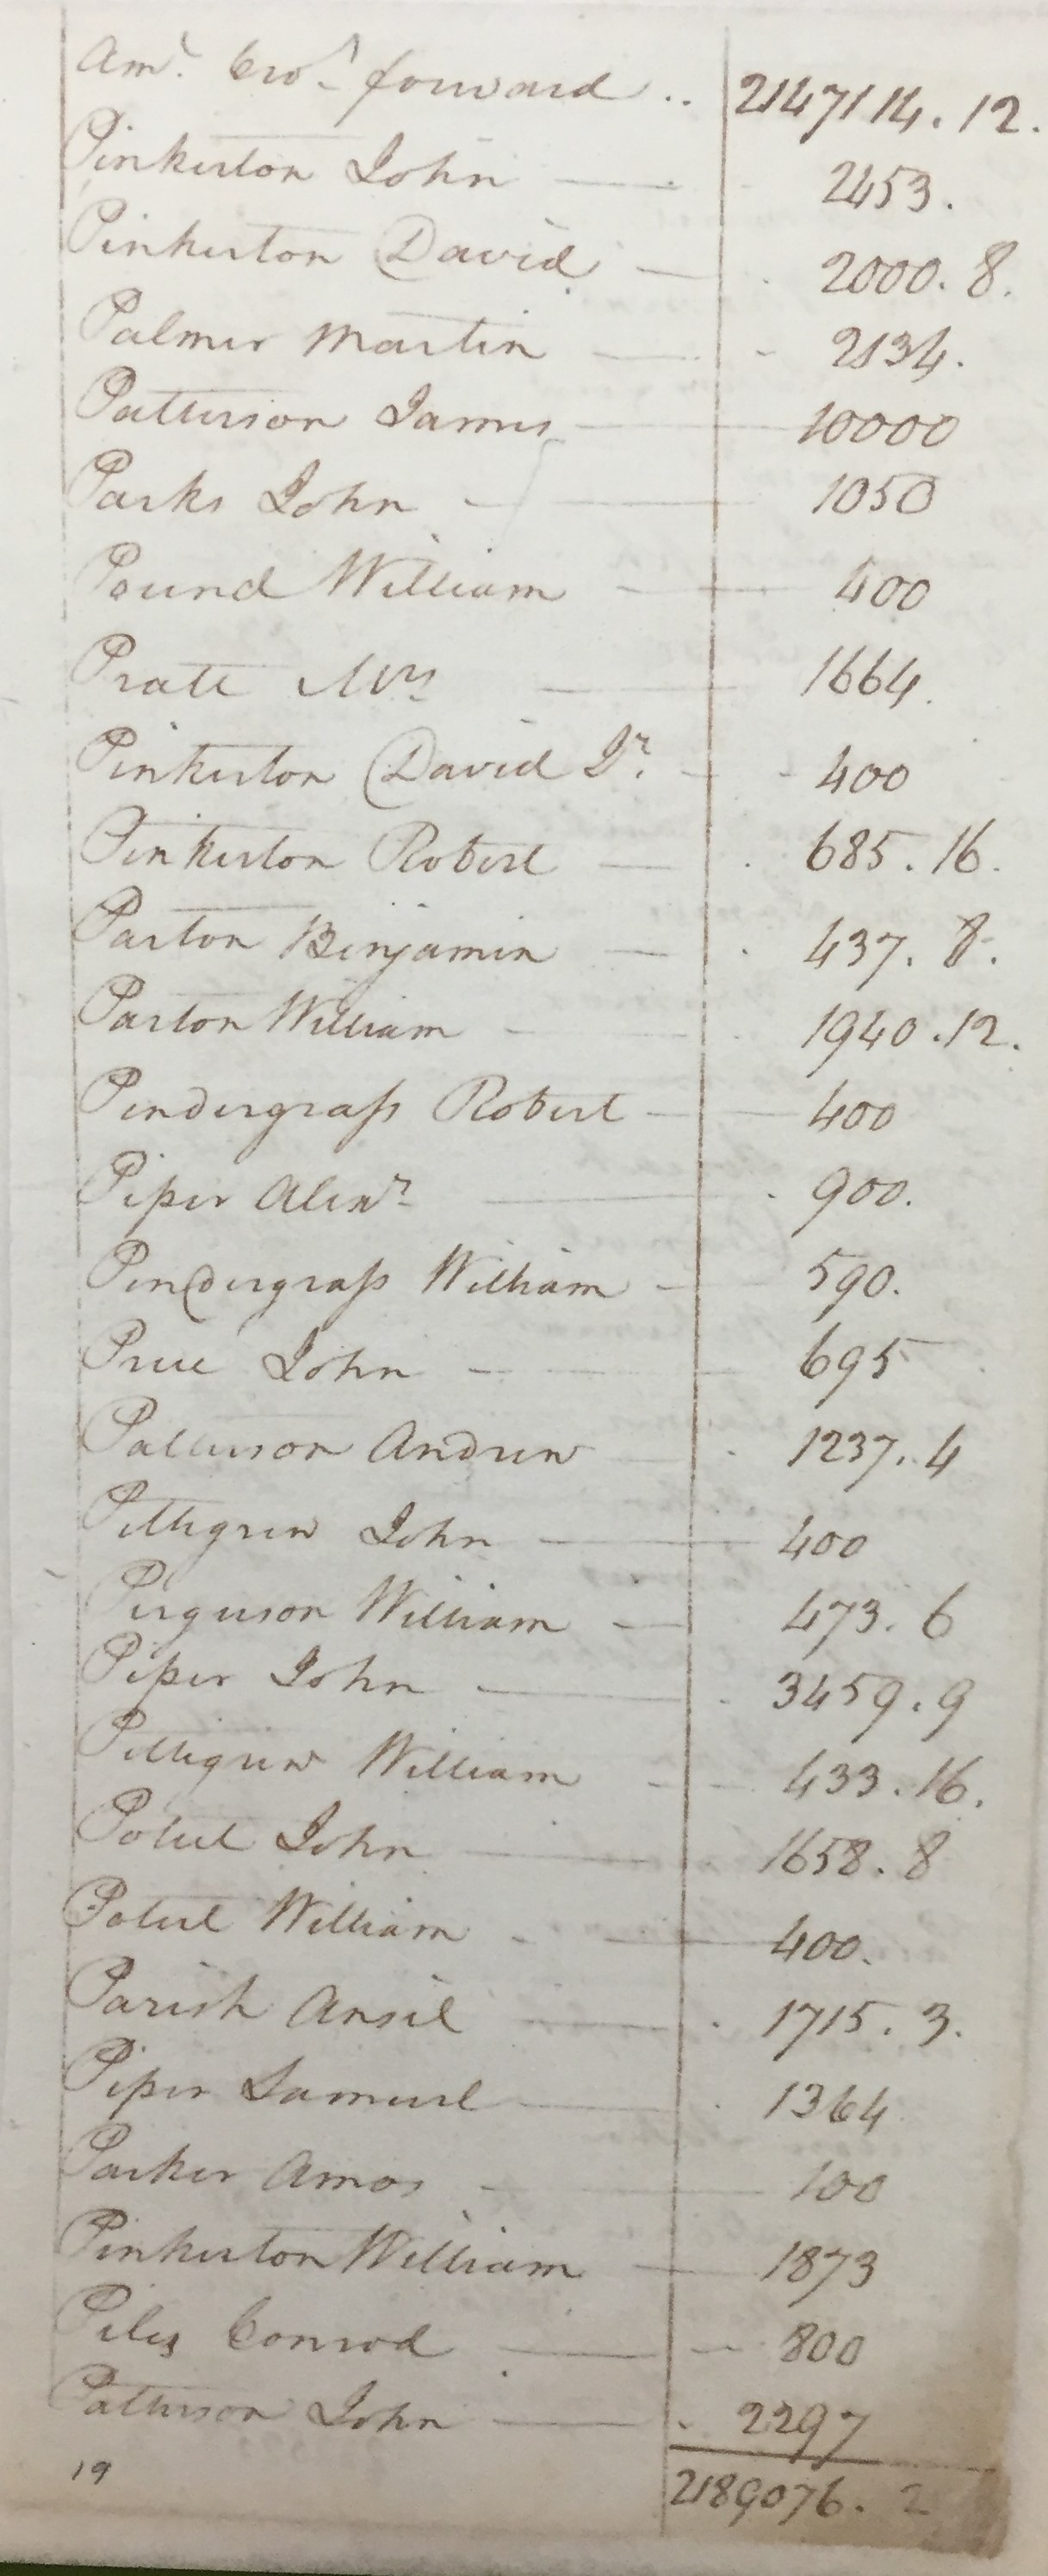 Amt. bro.t forward .. 2147114. 12.
Pinkerton John — 2453.
Pinkerton David — 2000. 8.
Palmer Martin — 2134.
Patterson James — 10000
Parks John — 1050
Pound William — 400
Prate Mrs — 1664.
Pinkerton David Jr. — 400
Pinkerton Robert — 685. 16.
Parton Benjamin — 437. 8.
Parton William — 1940. 12.
Pendergrass Robert — 400
Piper Alexr. — 900.
Pendergrass William — 590.
Price John — 695
Patterson Andrew 1237. 4
Pettigrew John — 400
Perguson William — 473. 6
Piper John — 3459. 9
Pettigrew William — 433. 16.
Poteet John — 1658. 8
Poteet William — 400.
Parish Ansel — 1715. 3.
Piper Samuel — 1364
Parker Amos — 100
Pinkerton William — 1873
Piles Conrod — 800
Patterson John — 2297
19 2189076. 2